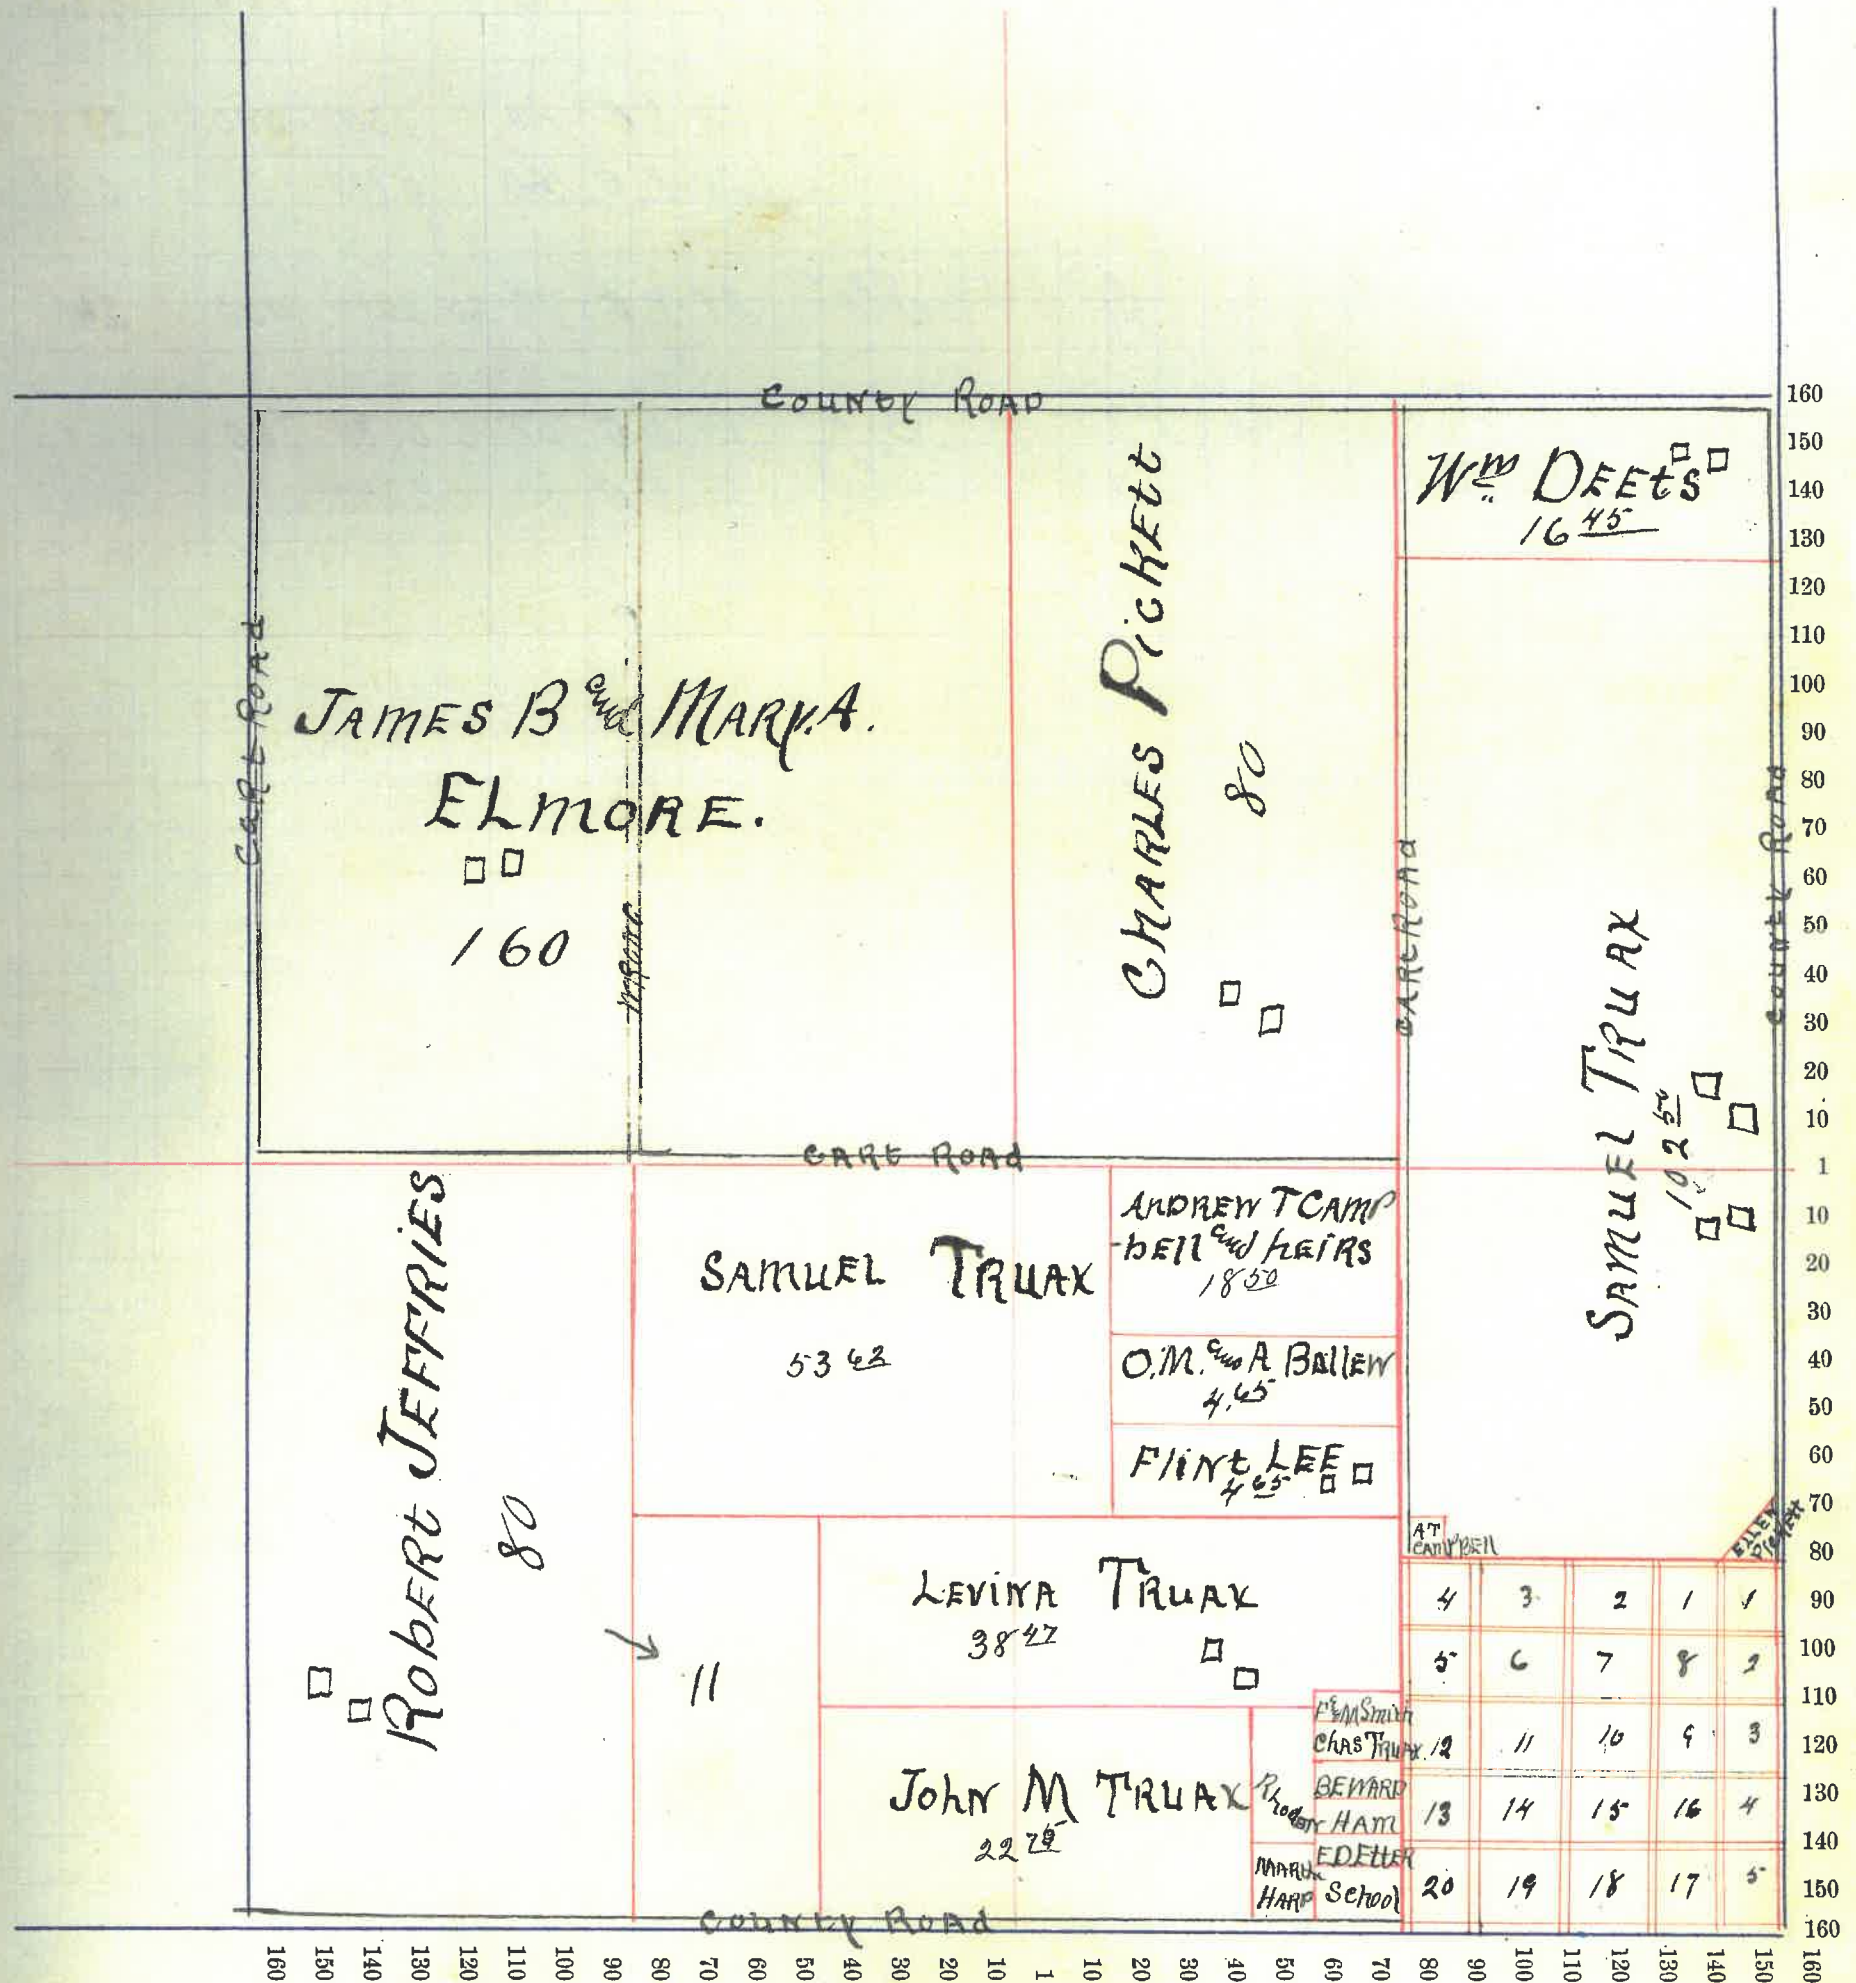 COUNty ROAD
CARt ROAd
JAMES B and MARY.A.
ELMORE.
160
CHARLES PICKEtt
80
Wm DEEtS
16 45
CARt ROAd
COUNtY ROAD
SAMUEL TRUAX
102 50
CARt ROAd
RobERt JEFFRIES
80
SAMUEL TRUAX
53 42
ANDREW T CAMP
-bEll and hEiRS
18 50
O.M. and A BAllEW
4.65
FliNt LEE
4 65
AT
CAMPBEll
EllEN
PICKEtt
LEViNA TRUAX
38 47
11
JohN M TRUAX
22 75
F & M Smith
ChAS TRUAX
BEWARD
HAM
EDEttER
School
MARthA
HARP
4 3 2 1 1
5 6 7 8 2
12 11 10 9 3
13 14 15 16 4
20 19 18 17 5
COUNtY ROAd
160
150
140
130
120
110
100
90
80
70
60
50
40
30
20
10
1
10
20
30
40
50
60
70
80
90
100
110
120
130
140
150
160
160 150 140 130 120 110 100 90 80 70 60 50 40 30 20 10 1 10 20 30 40 50 60 70 80 90 100 110 120 130 140 150 160